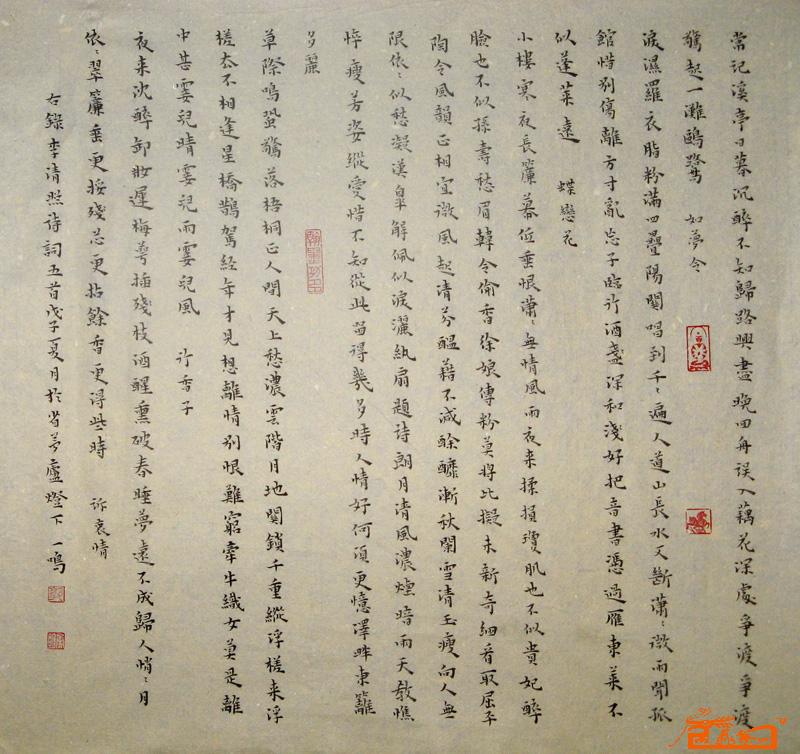 常記溪亭日暮沉醉不知歸路興盡晚回舟誤入藕花深處爭渡爭渡
驚起一灘鷗鷺 如夢令
淚濕羅衣脂粉滿四疊陽關唱到千〻遍人道山長水又斷瀟〻微雨聞孤
館惜別傷離方寸亂忘了臨行酒盞深和淺好把音書憑過雁東萊不
似蓬萊遠 蝶戀花
小樓寒夜長簾幕低垂恨瀟〻無情風雨夜來揉損瓊肌也不似貴妃醉
臉也不似孫壽愁眉韓令偷香徐娘傅粉莫將比擬未新奇細看取屈平
陶令風韻正相宜微風起清芬醞藉不減酴醾漸秋闌雪清玉瘦向人無
限依〻似愁凝漢皋解佩似淚灑紈扇題詩朗月清風濃煙暗雨天教憔
悴瘦芳姿縱愛惜不知從此留得幾多時人情好何須更憶澤畔東籬
多麗
草際鳴蛩驚落梧桐正人間天上愁濃雲階月地關鎖千重縱浮槎來浮
槎去不相逢星橋鵲駕經年才見想離情別恨難窮牽牛織女莫是離
中甚霎兒晴霎兒雨霎兒風 行香子
夜來沈醉卸妝遲梅萼插殘枝酒醒熏破春睡夢遠不成歸人悄〻月
依〻翠簾垂更挼殘蕊更拈餘香更得些時 訴衷情
右錄李清照詩詞五首戊子夏月於省夢廬燈下一鳴